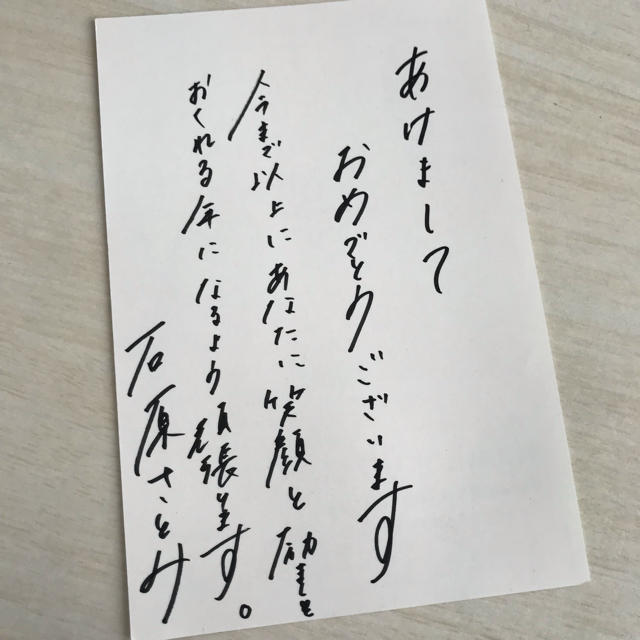 あけまして
おめでとうございます
今まで以上にあなたに笑顔と励ましを
おくれる年になるよう頑張ります。
石原さとみ